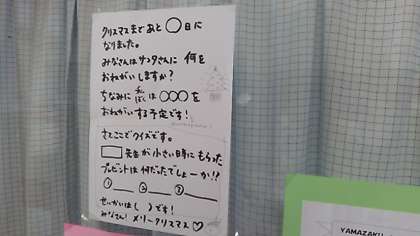 クリスマスまであと ◯日に
なりました。
みなさんはサンタさんに 何を
おねがいしますか?
ちなみに は ◯◯◯を
ぼく
おねがいする予定です!
さてここでクイズです。
□先生が小さい時にもらった
プレゼントは何だったでしょーか!?
①___ ②___ ③___
せいかいは( )です!
みなさん! メリークリスマス♡
YAMAZAKU